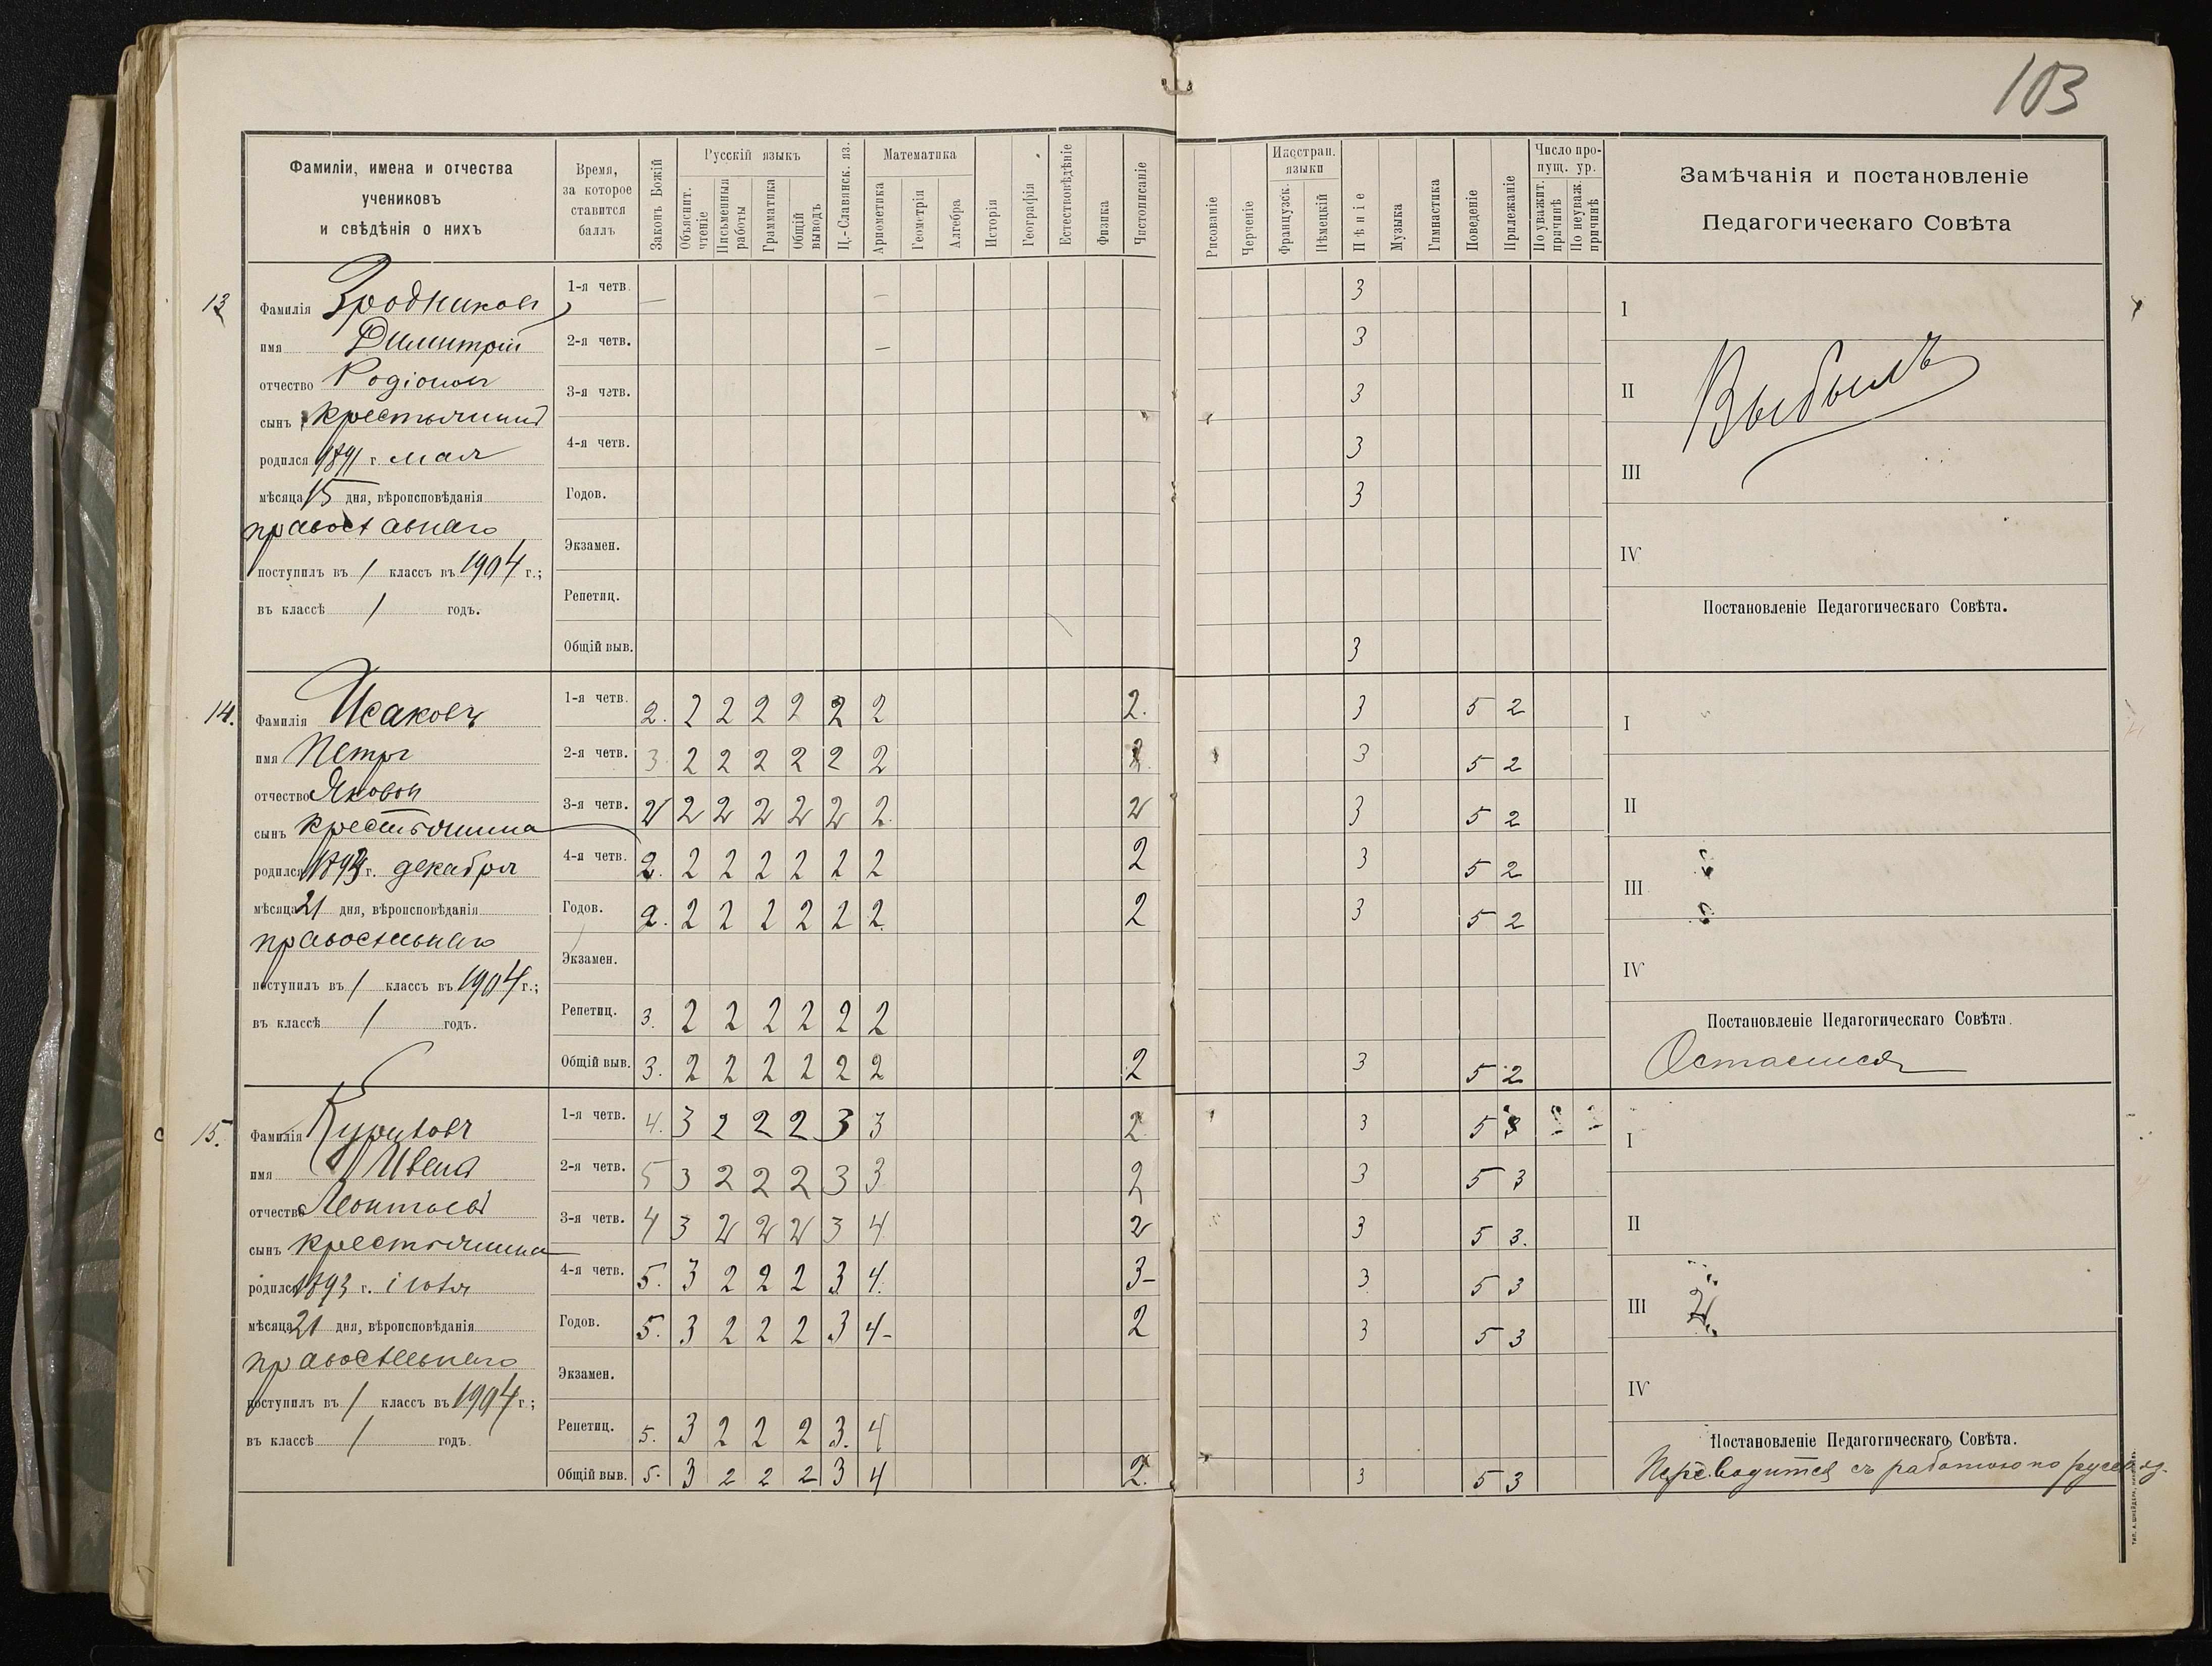 103
Фамиліи, имена и отчества
учениковъ
и свѣдѣнія о нихъ
Время,
за которое
ставится
баллъ
Законъ Божій
Русскій языкъ
Объяснит. чтеніе
Письменныя работы
Грамматика
Общій выводъ
Ц.-Славянск. яз.
Математика
Ариѳметика
Геометрія
Алгебра
Исторія
Географія
Естествовѣдѣніе
Физика
Чистописаніе
Рисованіе
Черченіе
Иностран. языки
Французск.
Нѣмецкій
Пѣніе
Музыка
Гимнастика
Поведеніе
Прилежаніе
Число пропущ. ур.
По уважит. причинѣ
По неуваж. причинѣ
Замѣчанія и постановленіе
Педагогическаго Совѣта
13
Фамилія Зродниковъ
имя Димитрій
отчество Родіонов
сынъ крестьянина
родился 1891 г. мая
мѣсяца 15 дня, вѣроисповѣданія
православнаго
поступилъ въ 1 классъ въ 1904 г.;
въ классѣ 1 годъ.
1-я четв. — — 3
2-я четв. — 3
3-я четв. 3
4-я четв. 3
Годов. 3
Экзамен.
Репетиц.
Общій выв. 3
I
II
Выбылъ
III
IV
Постановленіе Педагогическаго Совѣта.
14.
Фамилія Исаковъ
имя Петръ
отчество Яковов
сынъ крестьянина
родился г. декабря
мѣсяца 21 дня, вѣроисповѣданія
православнаго
поступилъ въ 1 классъ въ 1904 г.;
въ классѣ 1 годъ.
1-я четв. 2. 2 2 2 2 2 2 2. 3 5 2
2-я четв. 3 2 2 2 2 2 2 3 5 2
3-я четв. 2 2 2 2 2 2 2. 2 3 5 2
4-я четв. 2. 2 2 2 2 2 2 2 3 5 2
Годов. 2. 2 2 2 2 2 2. 2 3 5 2
Экзамен.
Репетиц. 3. 2 2 2 2 2 2
Общій выв. 3. 2 2 2 2 2 2 2 3 5 2
I
II
III
IV
Постановленіе Педагогическаго Совѣта.
Остается
15.
Фамилія
имя Ивана
отчество
сынъ крестьянина
родился 1893 г. іюля
мѣсяца 21 дня, вѣроисповѣданія
православнаго
поступилъ въ 1 классъ въ 1904 г.;
въ классѣ 1 годъ.
1-я четв. 4. 3 2 2 2 3 3 2 3 5 3
2-я четв. 5 3 2 2 2 3 3 2 3 5 3
3-я четв. 4 3 2 2 2 3 4 2 3 5 3.
4-я четв. 5. 3 2 2 2 3 4. 3- 3 5 3
Годов. 5. 3 2 2 2 3 4- 2 3 5 3
Экзамен.
Репетиц. 5. 3 2 2 2 3. 4
Общій выв. 5. 3 2 2 2 3 4 2. 3 5 3
I
II
III
IV
Постановленіе Педагогическаго Совѣта.
Переводится съ работою по русск. яз.